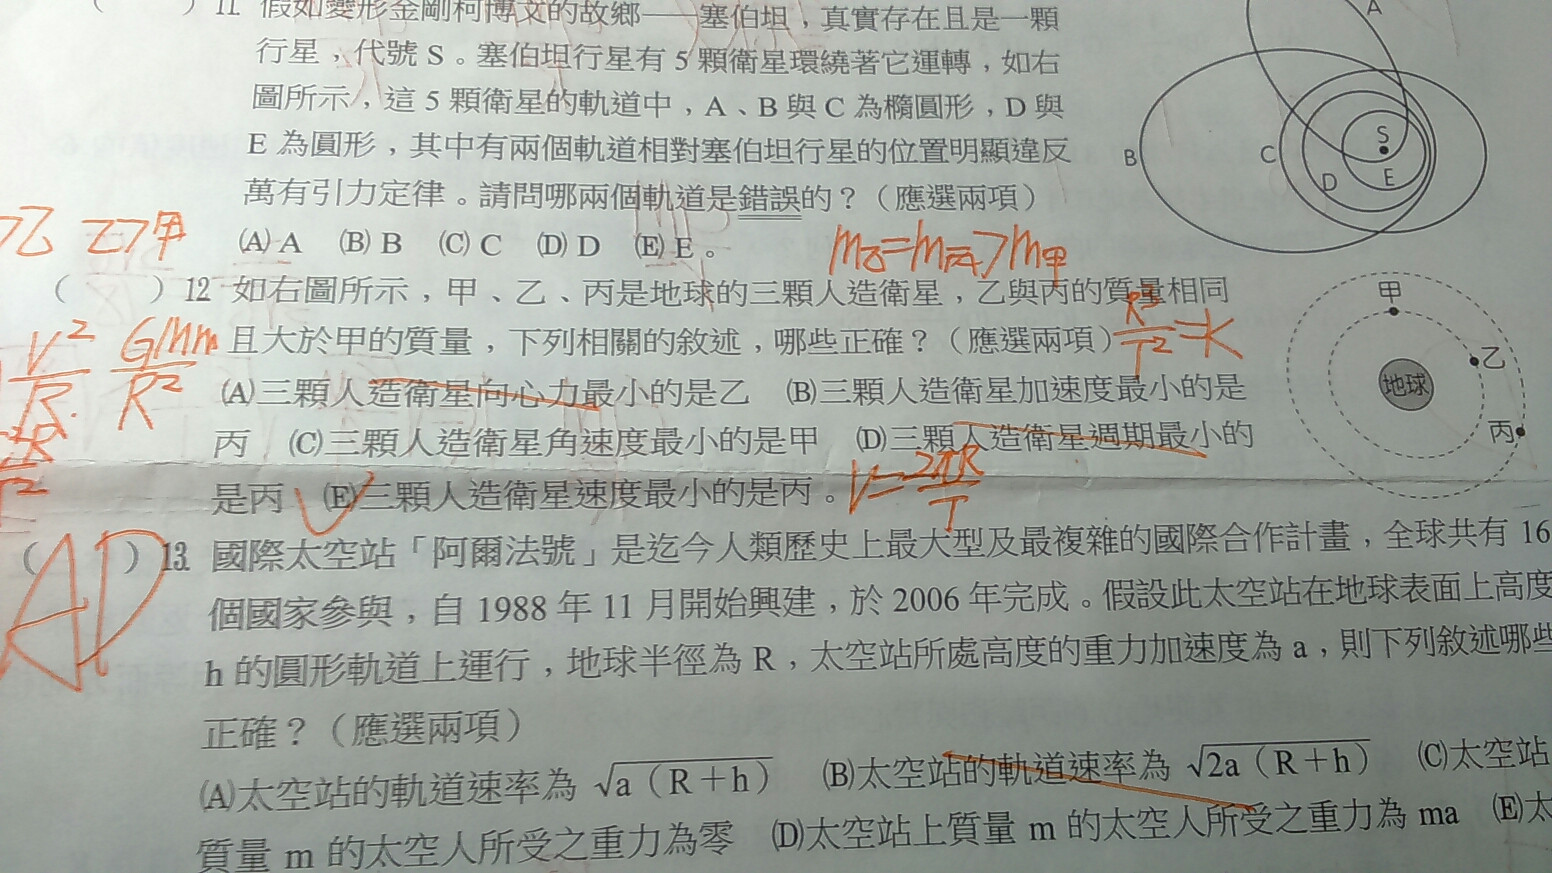 11 假如變形金剛柯博文的故鄉——塞伯坦，真實存在且是一顆
行星，代號 S。塞伯坦行星有 5 顆衛星環繞著它運轉，如右
圖所示，這 5 顆衛星的軌道中，A、B 與 C 為橢圓形，D 與
E 為圓形，其中有兩個軌道相對塞伯坦行星的位置明顯違反
萬有引力定律。請問哪兩個軌道是錯誤的？（應選兩項）
(A) A (B) B (C) C (D) D (E) E。
A
B
C
D
E
S
乙 乙>甲
m乙=m丙>m甲
（ ）12 如右圖所示，甲、乙、丙是地球的三顆人造衛星，乙與丙的質量相同
且大於甲的質量，下列相關的敘述，哪些正確？（應選兩項）
R³/T²=K
V²/R. GMm/R²
(A)三顆人造衛星向心力最小的是乙 (B)三顆人造衛星加速度最小的是
丙 (C)三顆人造衛星角速度最小的是甲 (D)三顆人造衛星週期最小的
是丙 (E)三顆人造衛星速度最小的是丙。
V=2πR/T
甲
乙
地球
丙
AD
（ ）13 國際太空站「阿爾法號」是迄今人類歷史上最大型及最複雜的國際合作計畫，全球共有 16
個國家參與，自 1988 年 11 月開始興建，於 2006 年完成。假設此太空站在地球表面上高度
h 的圓形軌道上運行，地球半徑為 R，太空站所處高度的重力加速度為 a，則下列敘述哪些
正確？（應選兩項）
(A)太空站的軌道速率為 √a（R+h） (B)太空站的軌道速率為 √2a（R+h） (C)太空站
質量 m 的太空人所受之重力為零 (D)太空站上質量 m 的太空人所受之重力為 ma (E)太